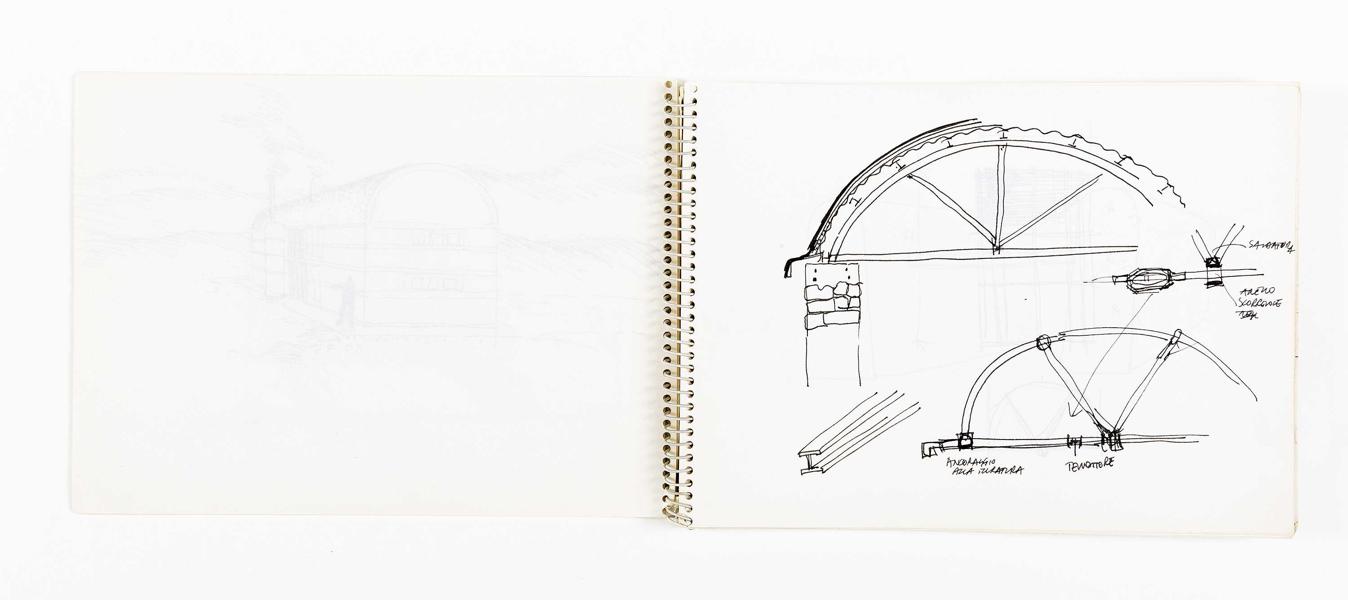 SALDATURA
ANELLO
SCORREVOLE
ANCORAGGIO
ALLA MURATURA
TENDITORE